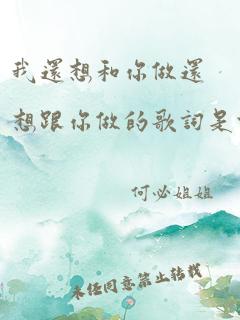 我還想和你做還
想跟你做的歌詞是
何必姐姐
未经同意禁止转载